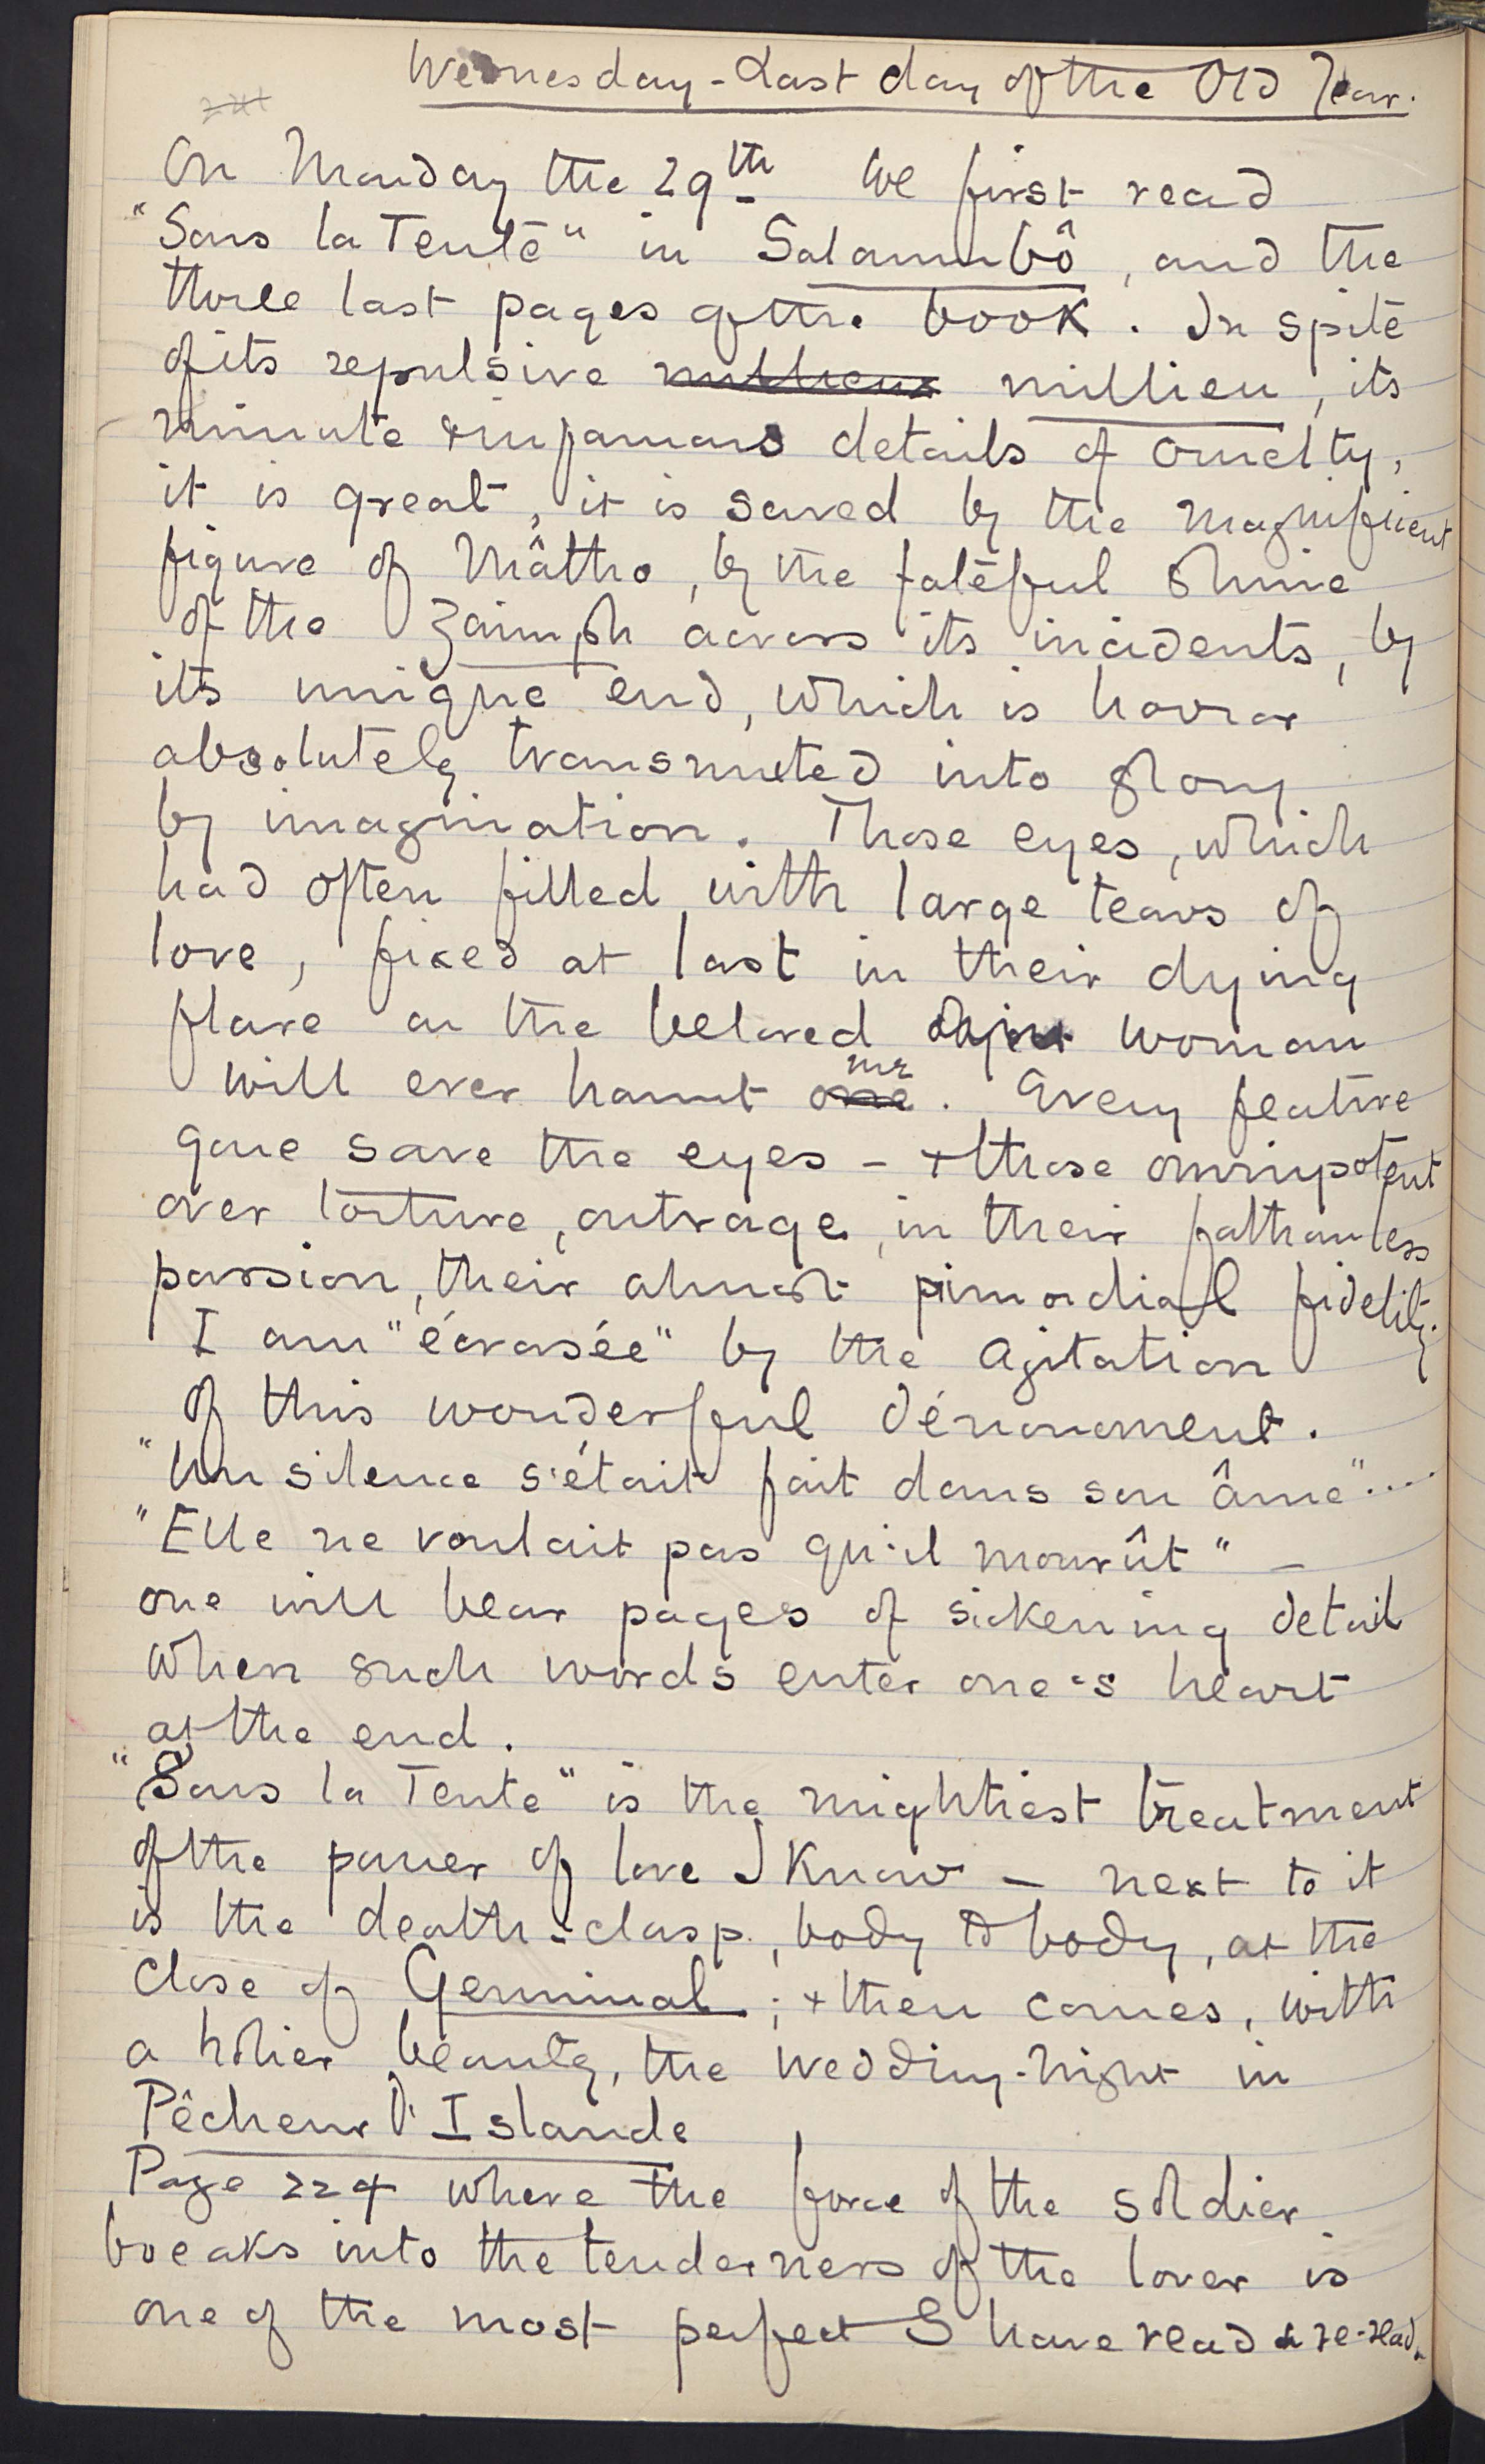 Wednesday - Last day of the Old Year.
On Monday the 29th we first read
"Sous la Tente" in Salammbô, and the
three last pages of the book. In spite
of its repulsive millieu, its
minute & infamous details of cruelty,
it is great, it is saved by the magnificent
figure of Mâtho, by the fateful shine
of the Zaïmph across its incidents, by
its unique end, which is horror
absolutely transmuted into glory
by imagination. Those eyes, which
had often filled with large tears of
love, fixed at last in their dying
flare on the beloved woman
will ever haunt one me. Every feature
gone save the eyes - & those omnipotent
over torture, outrage, in their fathomless
passion, their almost primordial fidelity.
I am "écrasée" by the agitation
of this wonderful dénouement.
"Un silence s'était fait dans son âme"....
"Elle ne voulait pas qu'il mourût" -
one will bear pages of sickening detail
when such words enter one's heart
at the end.
"Sous la Tente" is the mightiest treatment
of the power of love I know - next to it
is the death-clasp, body to body, at the
close of Germinal; & then comes, with
a holier beauty, the wedding-night in
Pêcheur d'Islande
Page 224 where the force of the soldier
breaks into the tenderness of the lover is
one of the most perfect I have read & re-read.